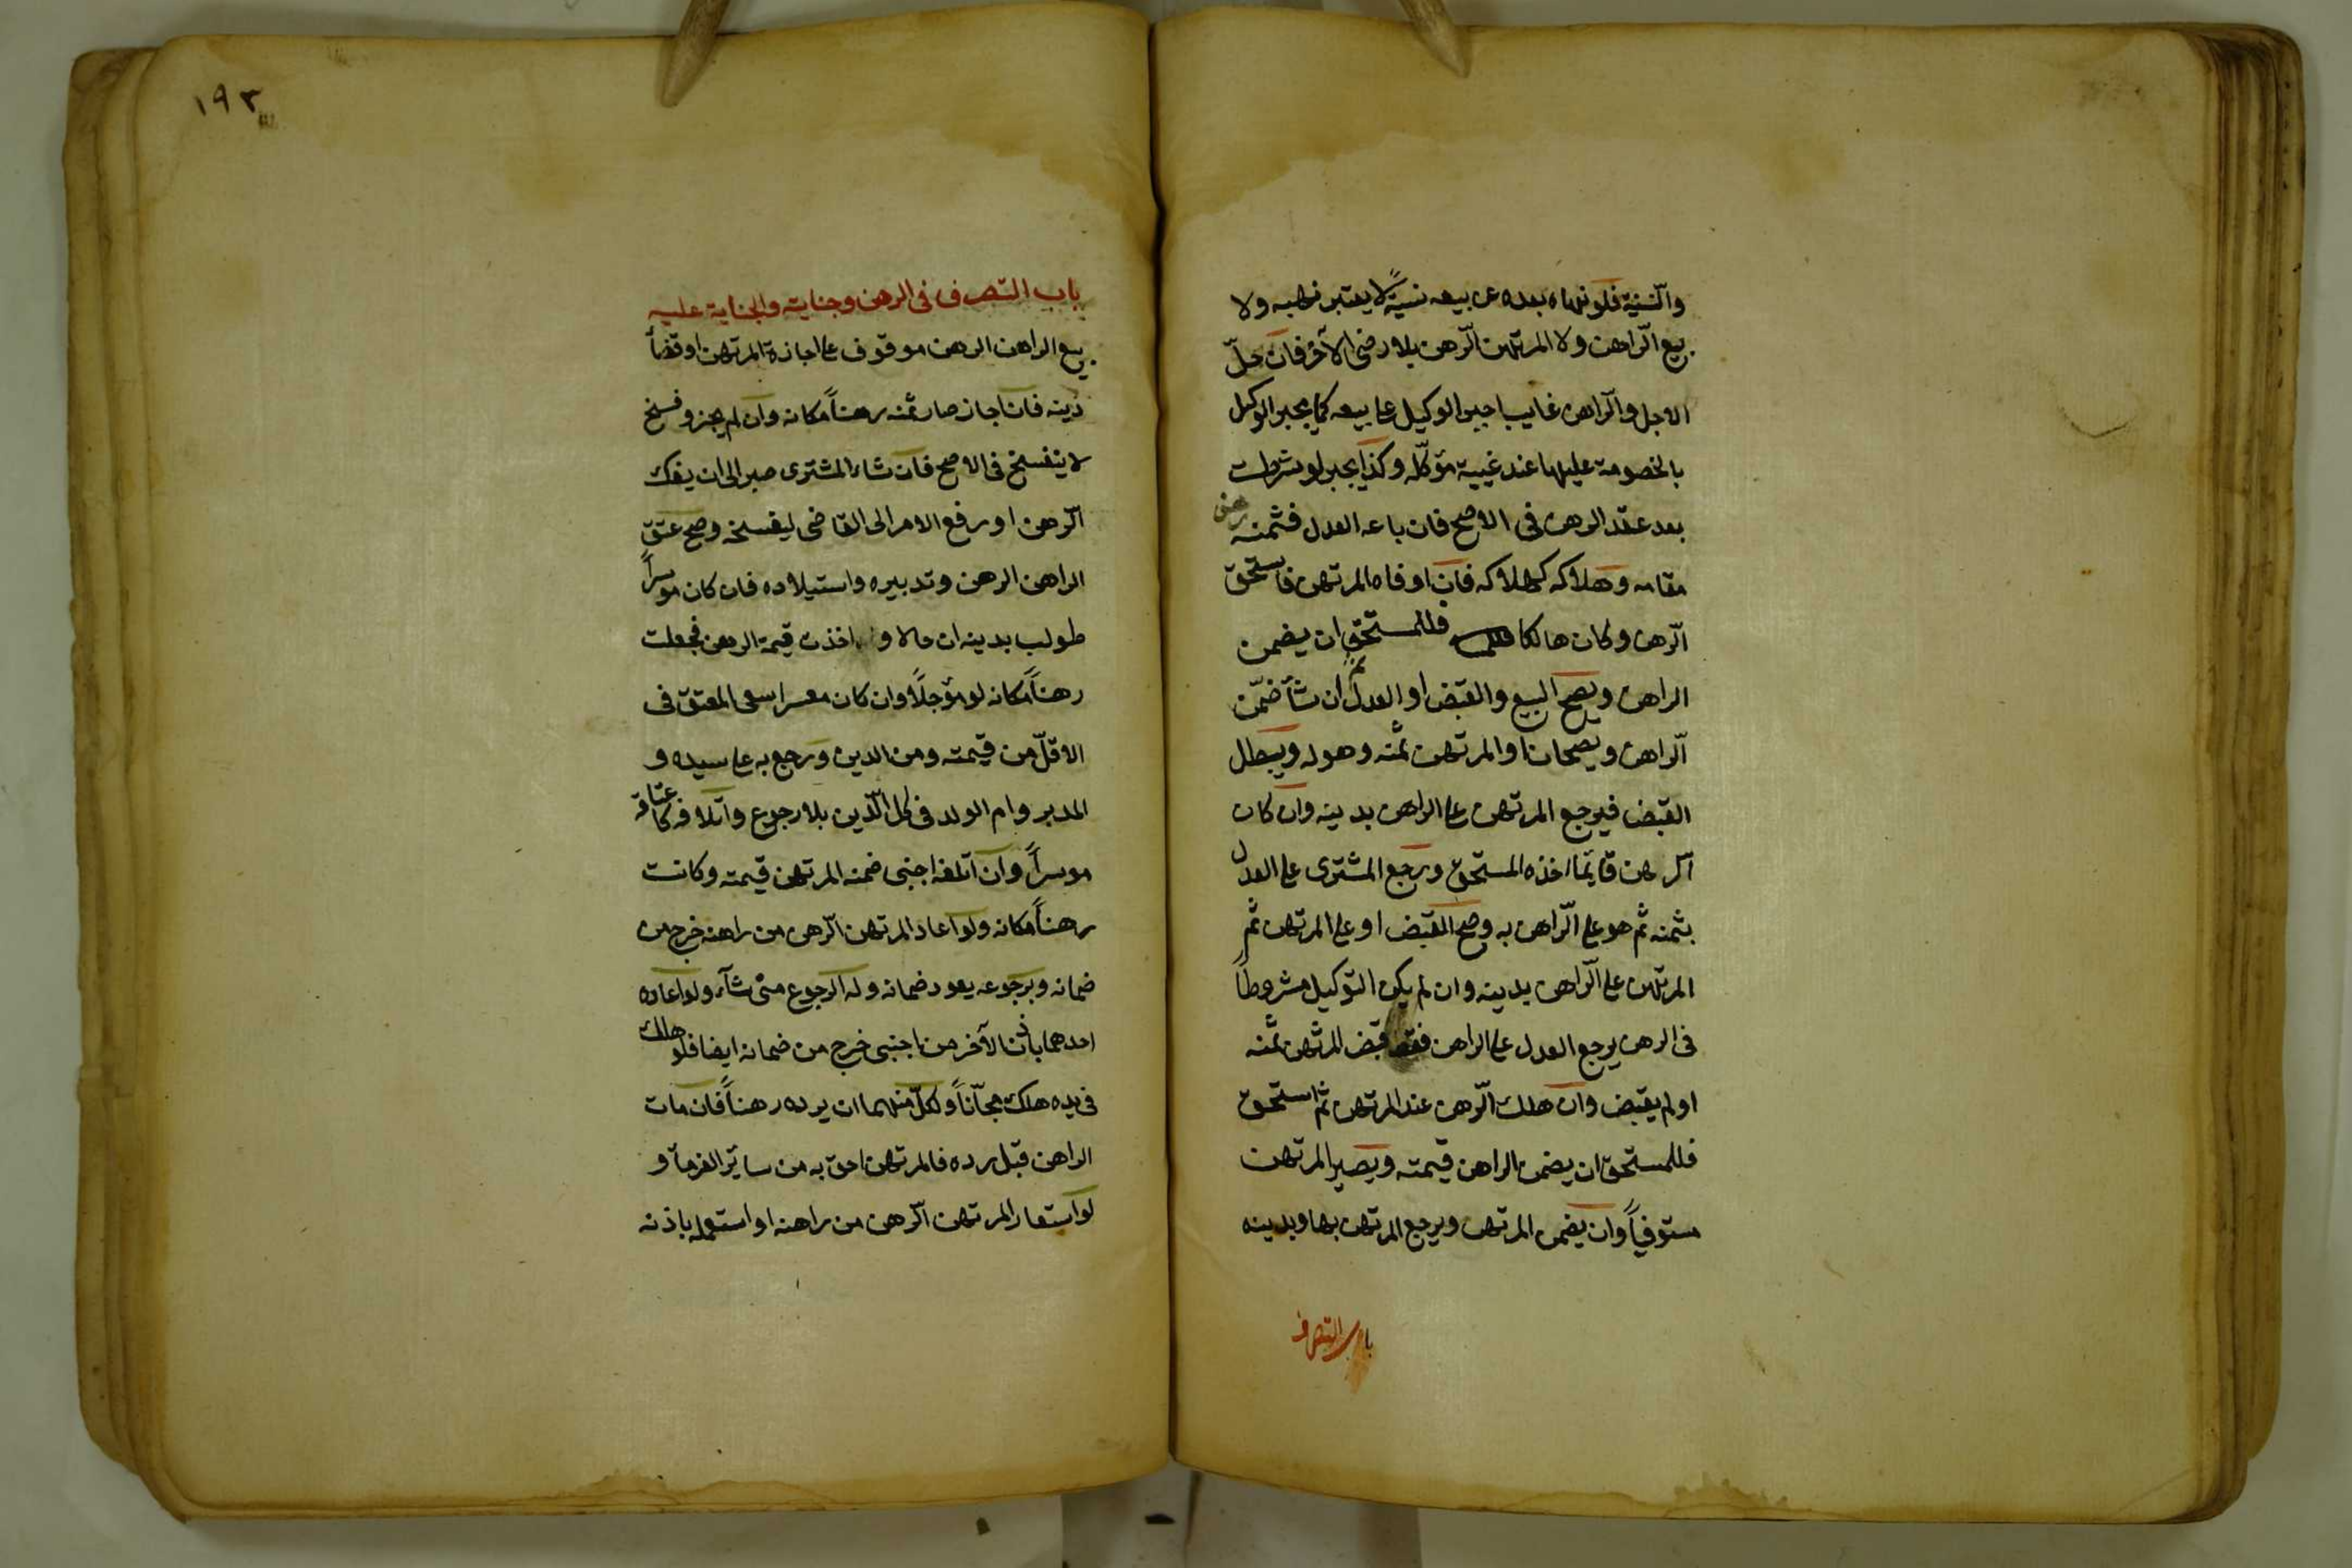 والنسية فلو نهاه بعده عن بيعه نسيةً لا يعتبر نهيه ولا
بيع الراهن ولا المرتهن الرهن بلا رضى الآخر فان حلّ
الاجل والراهن غايب اجبر الوكيل على بيعه كما يجبر الوكيل
بالخصومة عليها عند غيبة مؤكّله وكذا يجبر لو شرطت
بعد عقد الرهن فى الاصح فان باعه العدل فثمنه رهن
مقامه وهلاكه كهلاكه فان اوفاه المرتهن فاستحق
الرهن وكان هالكا فللمستحق ان يضمن
الراهن ويصح البيع والقبض او العدل ثم ان شآ ضمّن
الراهن ويصحان او المرتهن ثمنه وهو له ويبطل
القبض فيرجع المرتهن على الراهن بدينه وان كان
الرهن قايما اخذه المستحق ورجع المشترى على العدل
بثمنه ثم هو على الراهن به وصح القبض او على المرتهن ثم
المرتهن على الراهن بدينه وان لم يكن التوكيل مشروطاً
فى الرهن يرجع العدل على الراهن فقط قبض المرتهن ثمنه
او لم يقبض وان هلك الرهن عند المرتهن ثم استحق
فللمستحق ان يضمن الراهن قيمته ويصير المرتهن
مستوفياً وان يضمن المرتهن ويرجع المرتهن بها وبدينه
باب التصرف
١٩٣
باب التصرف فى الرهن وجنايته والجناية عليه
بيع الراهن الرهن موقوف على اجازة المرتهن او قضآ
دينه فان اجاز صار ثمنه رهناً مكانه وان لم يجز وفسخ
لا ينفسخ فى الاصح فان شاء المشترى صبر الى ان يفك
الرهن او رفع الامر الى القاضى ليفسخه وصح عتق
الراهن الرهن وتدبيره واستيلاده فان كان موسراً
طولب بدينه ان حالا و اخذت قيمة الرهن فجعلت
رهناً مكانه لو مؤجلاً وان كان معسرا سعى المعتق فى
الاقلّ من قيمته ومن الدين ورجع به على سيده و
المدبر وام الولد فى كل الدّين بلا رجوع واتلافه كاعتاقه
موسراً وان اتلفه اجنبى ضمنه المرتهن قيمته وكانت
رهناً مكانه ولو اعاد المرتهن الرهن من راهنه خرج من
ضمانه وبرجوعه يعود ضمانه وله الرجوع متى شآء ولو اعاده
احدهما باذن الآخر من اجنبى خرج من ضمانه ايضا فلو هلك
فى يده هلك مجّاناً ولكلّ منهما ان يرده رهناً فان مات
الراهن قبل رده فالمرتهن احق به من سائر الغرمآ و
لو استعار المرتهن الرهن من راهنه او استعمله باذنه